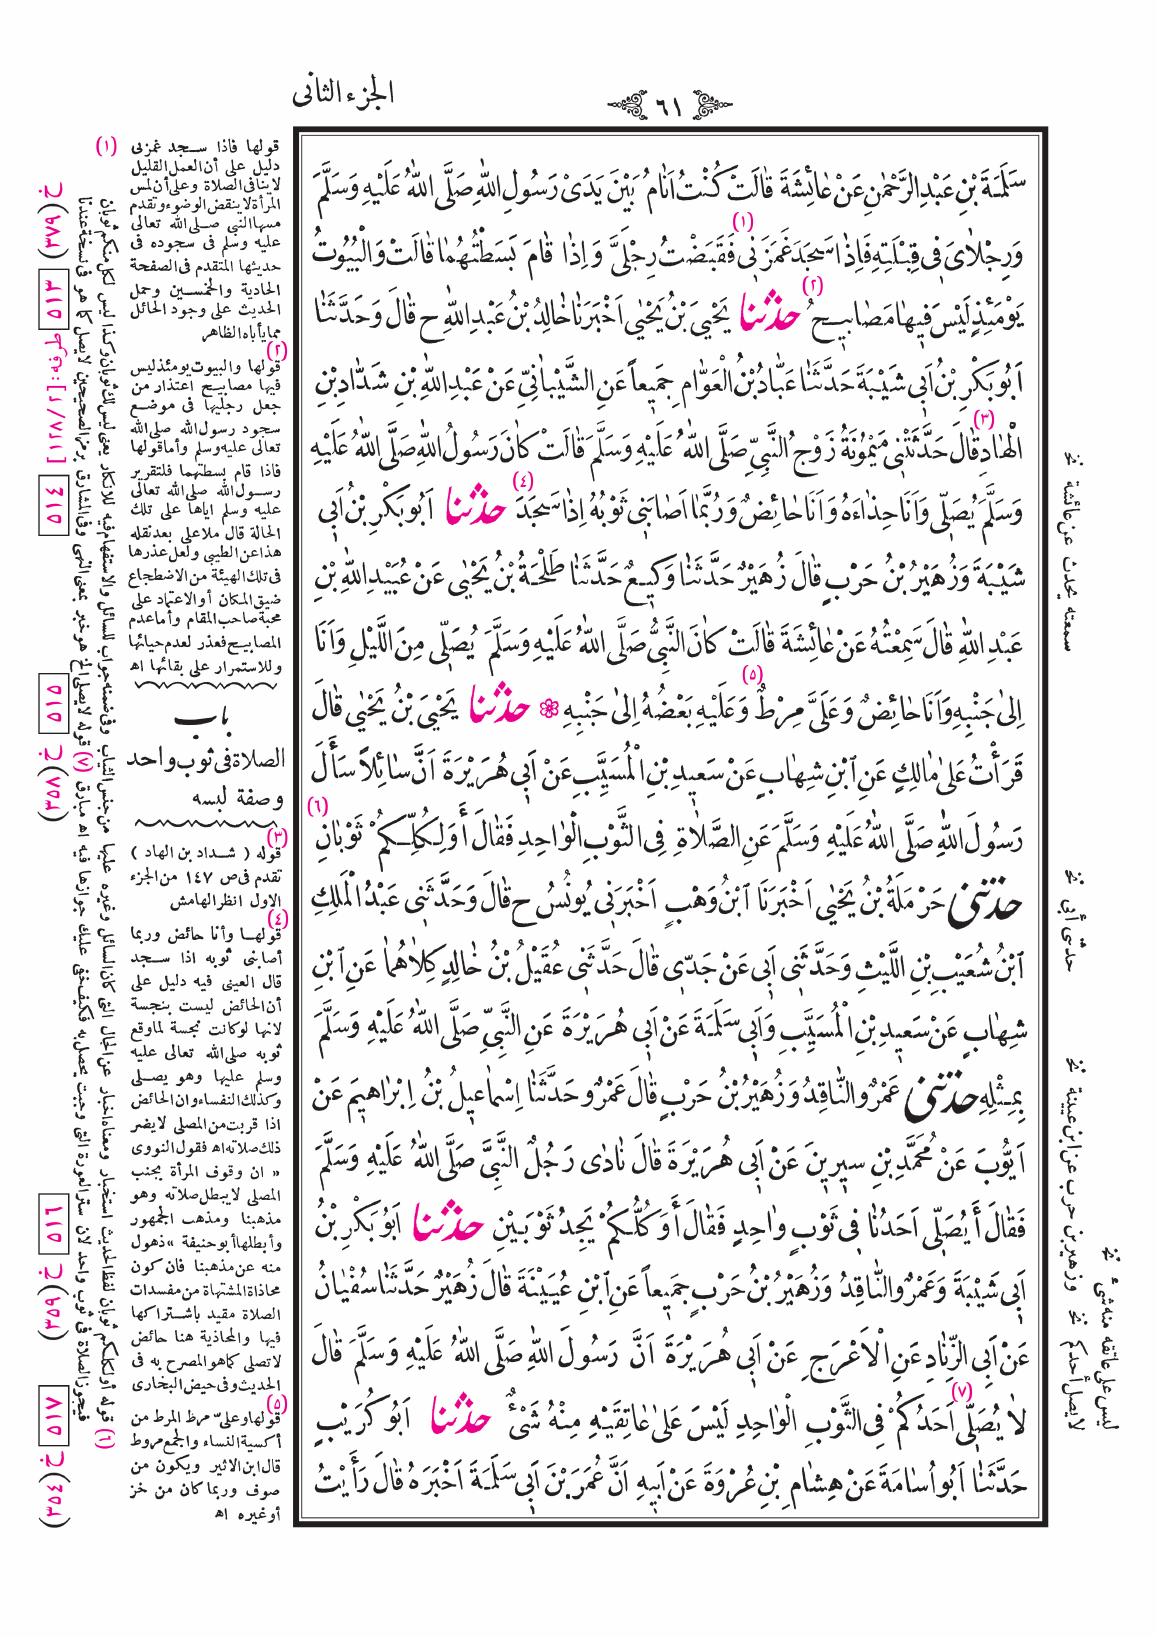 الجزء الثانى
٦١
سَلَمَةَ بْنِ عَبْدِ الرَّحْمٰنِ عَنْ عَائِشَةَ قَالَتْ كُنْتُ اَنَامُ بَيْنَ يَدَىْ رَسُولِ اللّٰهِ صَلَّى اللّٰهُ عَلَيْهِ وَسَلَّمَ
وَرِجْلَاىَ فِى قِبْلَتِهِ فَاِذَا سَجَدَ غَمَزَنِى (١) فَقَبَضْتُ رِجْلَىَّ وَاِذَا قَامَ بَسَطْتُهُمَا قَالَتْ وَالْبُيُوتُ
يَوْمَئِذٍ لَيْسَ فِيهَا مَصَابِيحُ (٢) حَدَّثَنَا يَحْيَى بْنُ يَحْيٰى اَخْبَرَنَا خَالِدُ بْنُ عَبْدِ اللّٰهِ ح قَالَ وَحَدَّثَنَا
اَبُو بَكْرِ بْنُ اَبِى شَيْبَةَ حَدَّثَنَا عَبَّادُ بْنُ الْعَوَّامِ جَمِيعاً عَنِ الشَّيْبَانِىِّ عَنْ عَبْدِ اللّٰهِ بْنِ شَدَّادِ بْنِ
الْهَادِ (٣) قَالَ حَدَّثَتْنِى مَيْمُونَةُ زَوْجُ النَّبِىِّ صَلَّى اللّٰهُ عَلَيْهِ وَسَلَّمَ قَالَتْ كَانَ رَسُولُ اللّٰهِ صَلَّى اللّٰهُ عَلَيْهِ
وَسَلَّمَ يُصَلِّى وَاَنَا حِذَاءَهُ وَاَنَا حَائِضٌ وَرُبَّمَا اَصَابَنِى ثَوْبُهُ اِذَا سَجَدَ (٤) حَدَّثَنَا اَبُو بَكْرِ بْنُ اَبِى
شَيْبَةَ وَزُهَيْرُ بْنُ حَرْبٍ قَالَ زُهَيْرٌ حَدَّثَنَا وَكِيعٌ حَدَّثَنَا طَلْحَةُ بْنُ يَحْيٰى عَنْ عُبَيْدِ اللّٰهِ بْنِ
عَبْدِ اللّٰهِ قَالَ سَمِعْتُهُ عَنْ عَائِشَةَ قَالَتْ كَانَ النَّبِىُّ صَلَّى اللّٰهُ عَلَيْهِ وَسَلَّمَ يُصَلِّى مِنَ اللَّيْلِ وَاَنَا
اِلٰى جَنْبِهِ وَاَنَا حَائِضٌ وَعَلَىَّ مِرْطٌ (٥) وَعَلَيْهِ بَعْضُهُ اِلٰى جَنْبِهِ ❁ حَدَّثَنَا يَحْيَى بْنُ يَحْيٰى قَالَ
قَرَأْتُ عَلٰى مَالِكٍ عَنِ ابْنِ شِهَابٍ عَنْ سَعِيدِ بْنِ الْمُسَيَّبِ عَنْ اَبِى هُرَيْرَةَ اَنَّ سَائِلاً سَأَلَ
رَسُولَ اللّٰهِ صَلَّى اللّٰهُ عَلَيْهِ وَسَلَّمَ عَنِ الصَّلَاةِ فِى الثَّوْبِ الْوَاحِدِ فَقَالَ أَوَلِكُلِّكُمْ ثَوْبَانِ (٦)
حَدَّثَنِى حَرْمَلَةُ بْنُ يَحْيٰى اَخْبَرَنَا ابْنُ وَهْبٍ اَخْبَرَنِى يُونُسُ ح قَالَ وَحَدَّثَنِى عَبْدُ الْمَلِكِ
ابْنُ شُعَيْبِ بْنِ اللَّيْثِ وَحَدَّثَنِى اَبِى عَنْ جَدِّى قَالَ حَدَّثَنِى عُقَيْلُ بْنُ خَالِدٍ كِلَاهُمَا عَنِ ابْنِ
شِهَابٍ عَنْ سَعِيدِ بْنِ الْمُسَيِّبِ وَاَبِى سَلَمَةَ عَنْ اَبِى هُرَيْرَةَ عَنِ النَّبِىِّ صَلَّى اللّٰهُ عَلَيْهِ وَسَلَّمَ
بِمِثْلِهِ حَدَّثَنِى عَمْرٌو النَّاقِدُ وَزُهَيْرُ بْنُ حَرْبٍ قَالَ عَمْرٌو حَدَّثَنَا اِسْمَاعِيلُ بْنُ اِبْرَاهِيمَ عَنْ
اَيُّوبَ عَنْ مُحَمَّدِ بْنِ سِيرِينَ عَنْ اَبِى هُرَيْرَةَ قَالَ نَادٰى رَجُلٌ النَّبِىَّ صَلَّى اللّٰهُ عَلَيْهِ وَسَلَّمَ
فَقَالَ أَيُصَلِّى اَحَدُنَا فِى ثَوْبٍ وَاحِدٍ فَقَالَ أَوَكُلُّكُمْ يَجِدُ ثَوْبَيْنِ حَدَّثَنَا اَبُو بَكْرِ بْنُ
اَبِى شَيْبَةَ وَعَمْرٌو النَّاقِدُ وَزُهَيْرُ بْنُ حَرْبٍ جَمِيعاً عَنِ ابْنِ عُيَيْنَةَ قَالَ زُهَيْرٌ حَدَّثَنَا سُفْيَانُ
عَنْ اَبِى الزِّنَادِ عَنِ الْاَعْرَجِ عَنْ اَبِى هُرَيْرَةَ اَنَّ رَسُولَ اللّٰهِ صَلَّى اللّٰهُ عَلَيْهِ وَسَلَّمَ قَالَ
لَا يُصَلِّى (٧) اَحَدُكُمْ فِى الثَّوْبِ الْوَاحِدِ لَيْسَ عَلٰى عَاتِقَيْهِ مِنْهُ شَىْءٌ حَدَّثَنَا اَبُو كُرَيْبٍ
حَدَّثَنَا اَبُو اُسَامَةَ عَنْ هِشَامِ بْنِ عُرْوَةَ عَنْ اَبِيهِ اَنَّ عُمَرَ بْنَ اَبِى سَلَمَةَ اَخْبَرَهُ قَالَ رَأَيْتُ
(١) قولها فاذا سجد غمزنى
دليل على أن العمل القليل
لا ينافى الصلاة وعلى أن لمس
المرأة لا ينقض الوضوء وتقدم
مسها النبى صلى الله تعالى
عليه وسلم فى سجوده فى
حديثها المتقدم فى الصفحة
الحادية والخمسين وحمل
الحديث على وجود الحائل
مما يأباه الظاهر
(٢) قولها والبيوت يومئذ ليس
فيها مصابيح اعتذار من
جعل رجليها فى موضع
سجود رسول الله صلى الله
تعالى عليه وسلم وأما قولها
فاذا قام بسطتهما فلتقرير
رسول الله صلى الله تعالى
عليه وسلم اياها على تلك
الحالة قال ملا على بعد نقله
هذا عن الطيبى ولعل عذرها
فى تلك الهيئة من الاضطجاع
ضيق المكان أو الاعتماد على
محبة صاحب المقام وأما عدم
المصابيح فعذر لعدم حيائها
وللاستمرار على بقائها اه
باب
الصلاة فى ثوب واحد
وصفة لبسه
(٣) قوله ( شداد بن الهاد )
تقدم فى ص ١٤٧ من الجزء
الاول انظر الهامش
(٤) قولها وأنا حائض وربما
أصابنى ثوبه اذا سجد
قال العينى فيه دليل على
أن الحائض ليست بنجسة
لانها لو كانت نجسة لما وقع
ثوبه صلى الله تعالى عليه
وسلم عليها وهو يصلى
وكذلك النفساء وان الحائض
اذا قربت من المصلى لا يضر
ذلك صلاته اه فقول النووى
« ان وقوف المرأة بجنب
المصلى لا يبطل صلاته وهو
مذهبنا ومذهب الجمهور
وأبطلها أبو حنيفة » ذهول
منه عن مذهبنا فان كون
محاذاة المشتهاة من مفسدات
الصلاة مقيد باشتراكها
فيها والمحاذية هنا حائض
لا تصلى كما هو المصرح به فى
الحديث وفى حيض البخارى
(٥) قولها وعلىّ مرط المرط من
أكسية النساء والجمع مروط
قال ابن الاثير ويكون من
صوف وربما كان من خز
أو غيره اه
(٦) قوله أولكلكم ثوبان لفظ الحديث استخبار ومعناه اخبار عن الحال التى كان السائل وغيره عليها من جنس الثياب وفى ضمنه جواب للسائل والاستفهام فيه للانكار يعنى ليس لك ثوبان وكذا ليس لكل منكم ثوبان
فيجوز الصلاة فى ثوب واحد لان ستر العورة التى وجبت يحصل به فكيف خفى عليك جوازها فيه اه مبارق (٧) قوله لا يصلى الخ هو خبر بمعنى النهى وفى المشارق برمز الصحيحين لا يصل كما هو فى نسخة عندنا
ج (٣٧٩)
٥١٣
٥١٤
٥١٥
ج (٧٥٣)
٥١٦
ج (٣٥٩)
٥١٨
ج (٣٥٤)
سمعته يحدث عن عائشة نخ
حدثنى أبى نخ
وزهير بن حرب عن ابن عيينة نخ
لا يصل أحدكم نخ
ليس على عاتقه منه شىء نخ